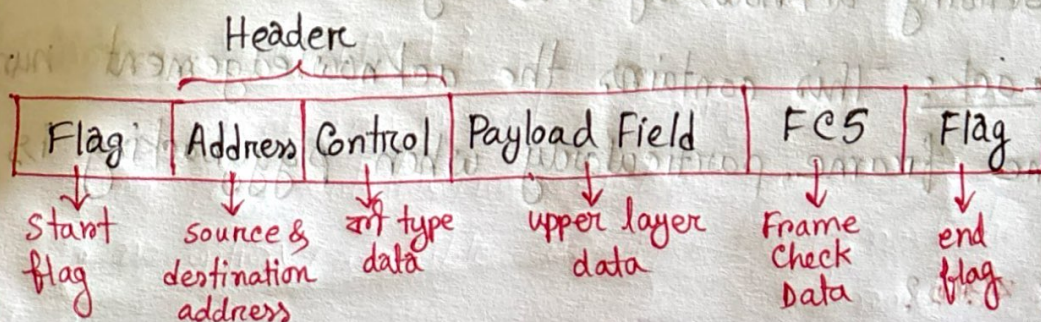 Header
Flag Address Control Payload Field FCS Flag
start flag
source & destination address
কী type data
upper layer data
Frame Check Data
end flag